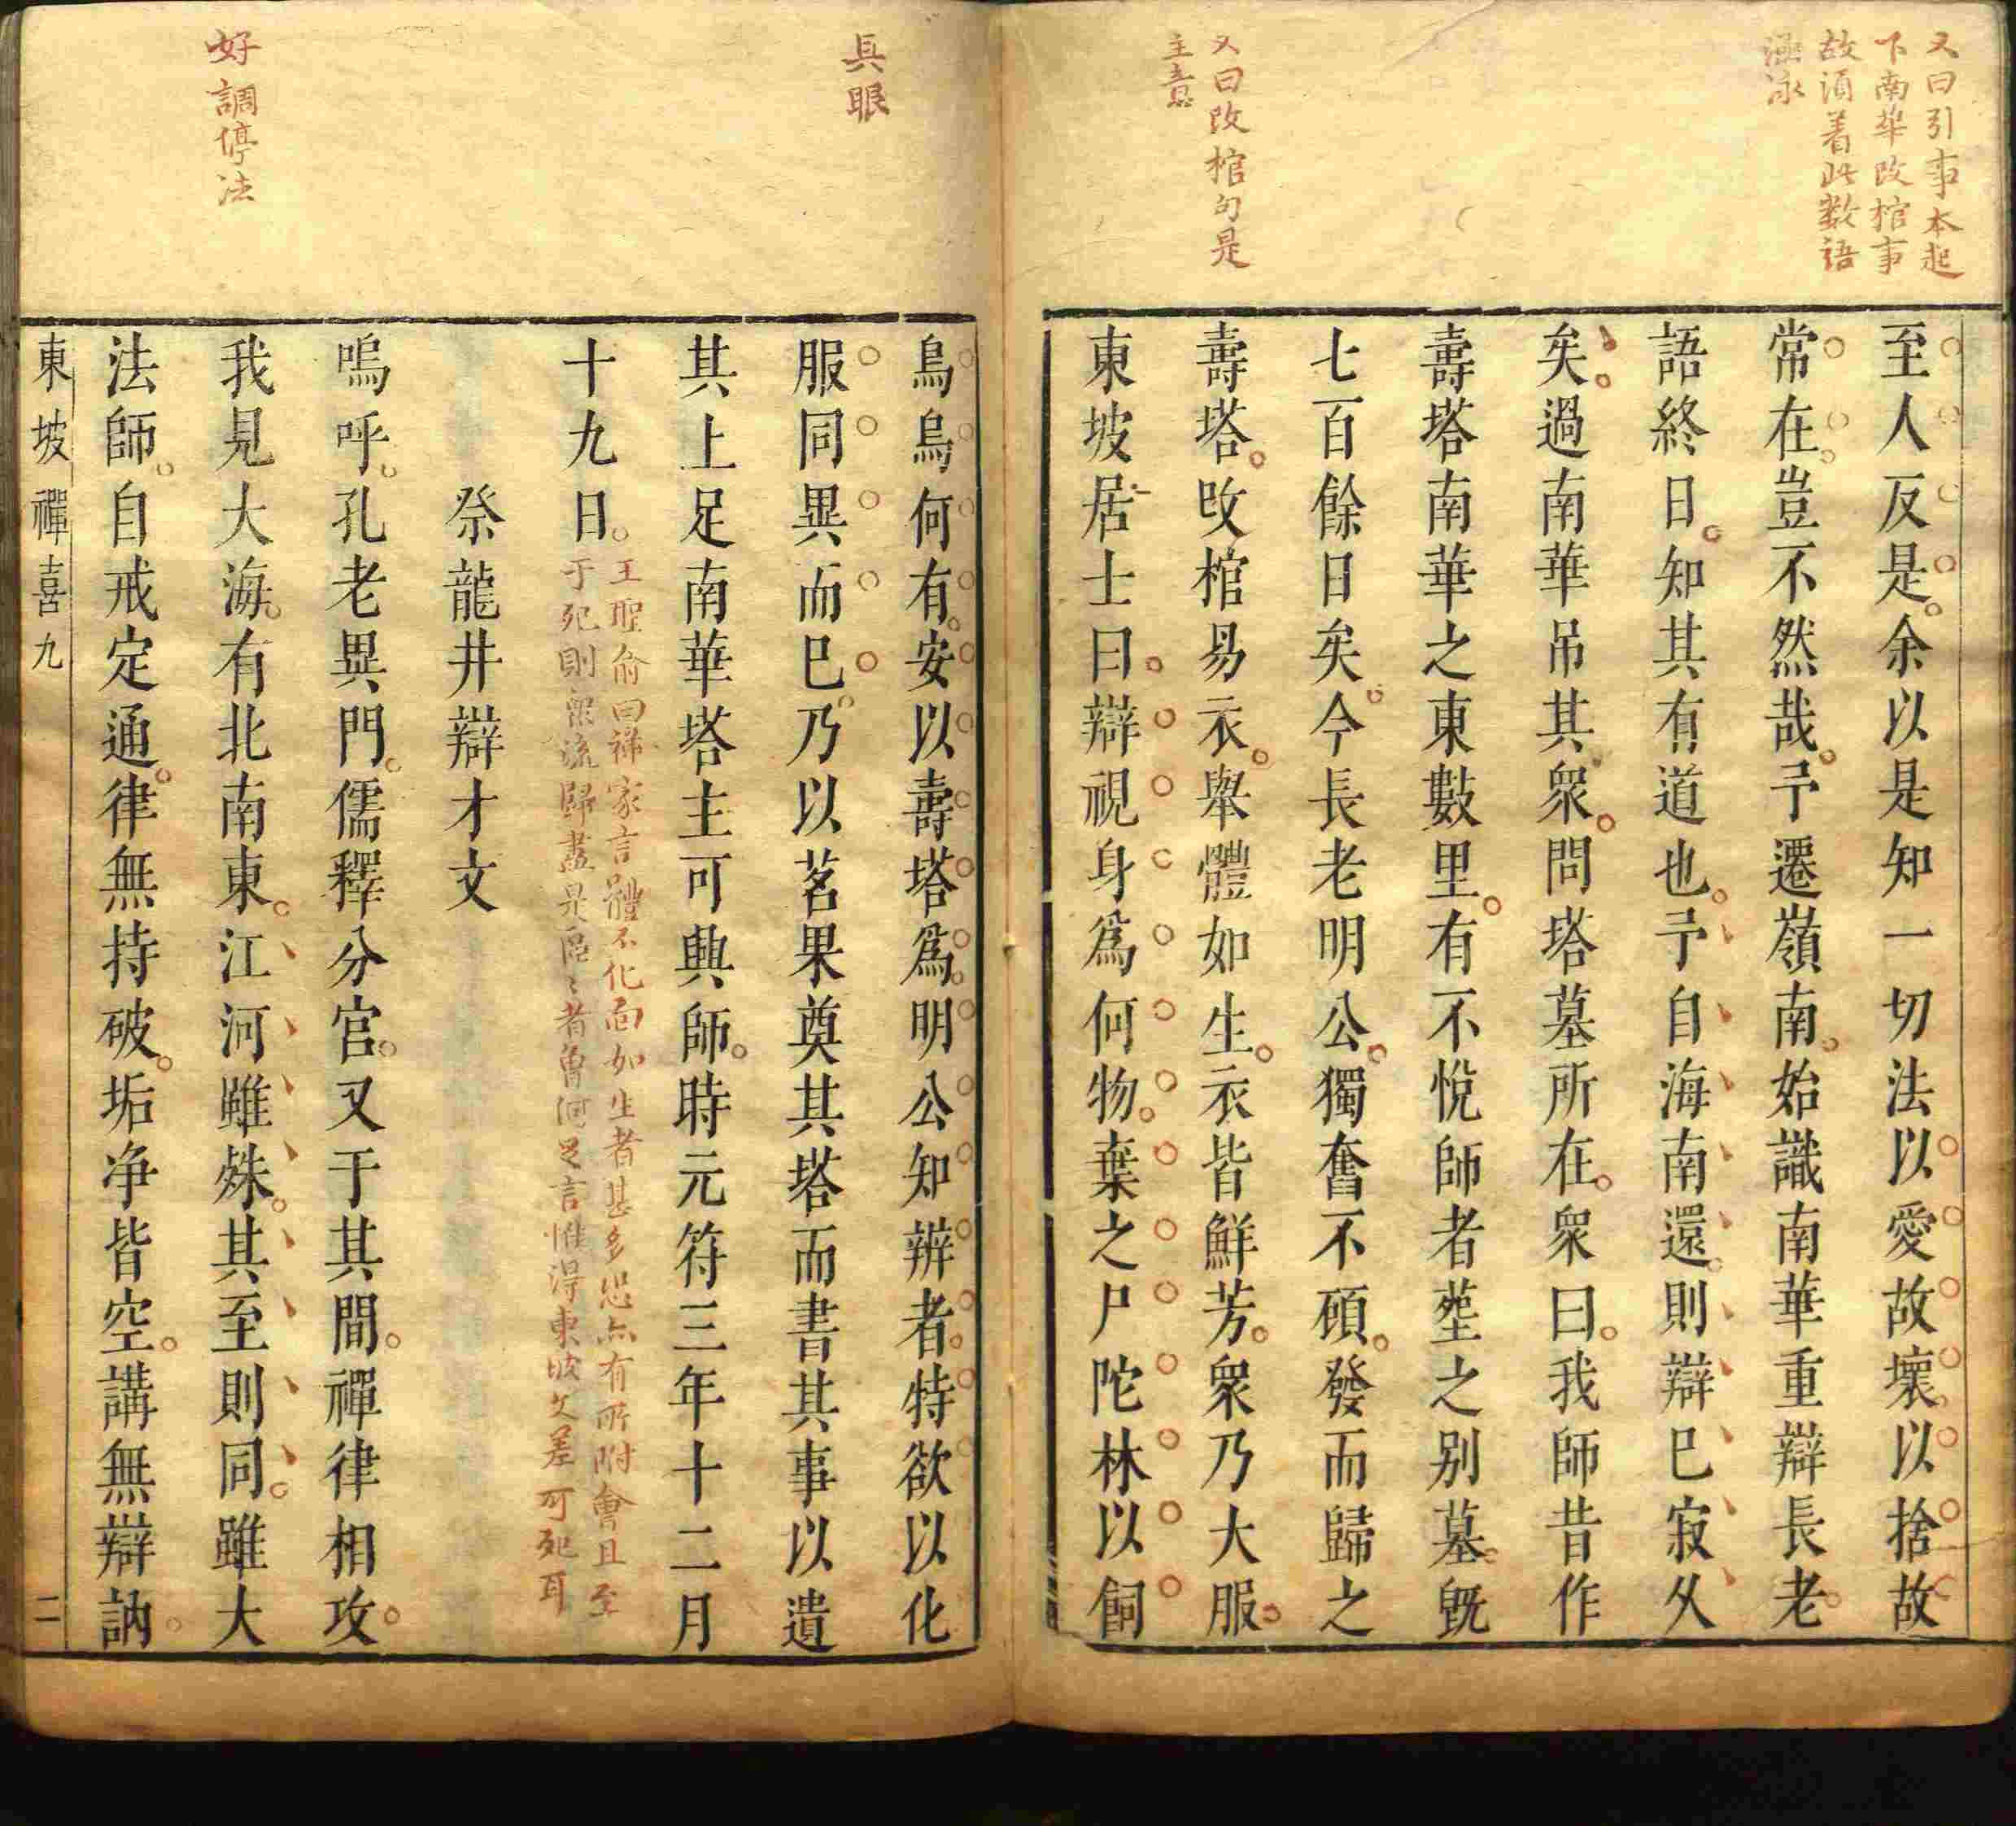 又曰引事本起
下南華改棺事
故須着此數語
涵泳
又曰改棺句是
主意
至人反是余以是知一切法以愛故壞以捨故
常在豈不然哉予遷嶺南始識南華重辯長老
語終日知其有道也予自海南還則辯已寂久
矣過南華吊其衆問塔墓所在衆曰我師昔作
壽塔南華之東數里有不悅師者塟之别墓既
七百餘日矣今長老明公獨奮不碩發而歸之
壽塔改棺易衣舉體如生衣皆鮮芳衆乃大服
東坡居士曰辯視身爲何物棄之尸陀林以飼
具眼
好調停法
鳥烏何有安以壽塔爲明公知辨者特欲以化
服同異而已乃以茗果奠其塔而書其事以遺
其上足南華塔主可興師時元符三年十二月
十九日
王聖俞曰禅家言體不化面如生者甚多恐亦有所附會且至
于死則衆流歸盡是區〻者曾何足言惟得東坡文差可死耳
祭龍井辯才文
嗚呼孔老異門儒釋分宫又于其間禪律相攻
我見大海有北南東江河雖殊其至則同雖大
法師自戒定通律無持破垢净皆空講無辯訥
東坡禪喜九
二